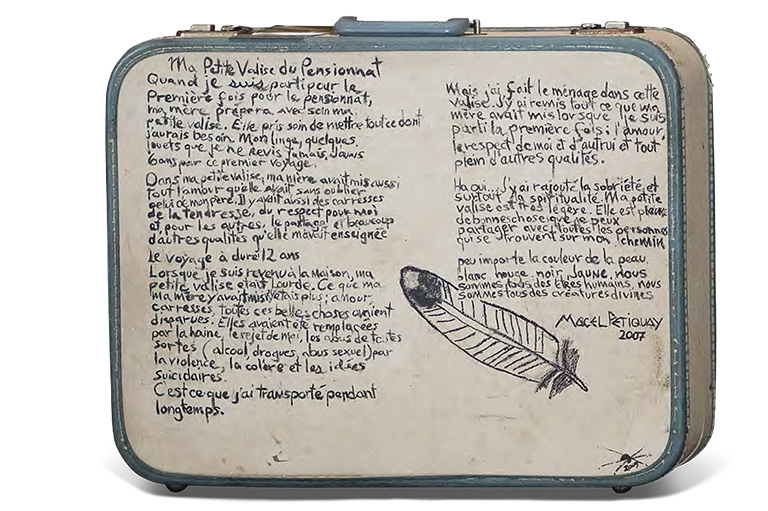 Ma Petite Valise du Pensionnat
Quand je suis parti pour la
Première fois pour le pensionnat,
ma mère prépara avec soin ma
petite valise. Elle pris soin de mettre tout ce dont
j'aurais besoin. Mon linge, quelques
jouets que je ne revis jamais. J'avais
6 ans pour ce premier voyage.
Dans ma petite valise, ma mère avait mis aussi
tout l'amour qu'elle avait sans oublier
celui de mon père. Il y avait aussi des caresses
de la tendresse, du respect pour moi
et pour les autres, le partage et beaucoup
d'autres qualités qu'elle m'avait enseignée
Le voyage à duré 12 ans
Lorsque je suis revenu à la Maison, ma
petite valise était Lourde. Ce que ma
ma mère y avait mis n'était plus; amour,
carresses, toutes ces belles choses avaient
disparues. Elles avaient été remplacées
par la haine, le rejet de moi, les abus de toutes
sortes (alcool, drogues, abus sexuel) par
la violence, la colère et les idées
suicidaires.
C'est ce que j'ai transporté pendant
longtemps.
Mais j'ai fait le ménage dans cette
valise. J'y ai remis tout ce que ma
mère avait mis lorsque je suis
parti la première fois: l'amour,
le respect de moi et d'autrui et tout
plein d'autres qualités.
Ha oui... J'y ai rajouté la sobriété et
surtout la spiritualité. Ma petite
valise est très légère. Elle est pleine
de bonnes chose que je peux
partager avec toutes les personnes
qui se trouvent sur mon chemin
peu importe la couleur de la peau.
blanc, rouge, noir, Jaune. Nous
sommes tous des êtres humains, nous
sommes tous des créatures divines
Macel Petiquay
2007
2007